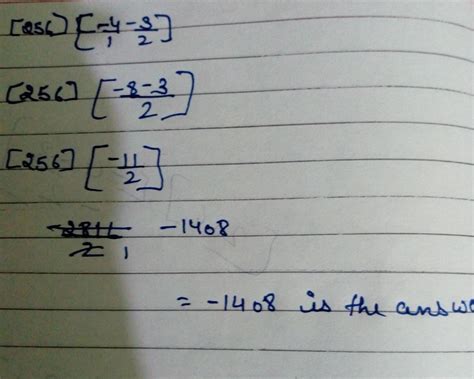 [256] [-4/1 - 3/2]
[256] [-8-3/2]
[256] [-11/2]
-2816/2 1 -1408
= -1408 is the answe